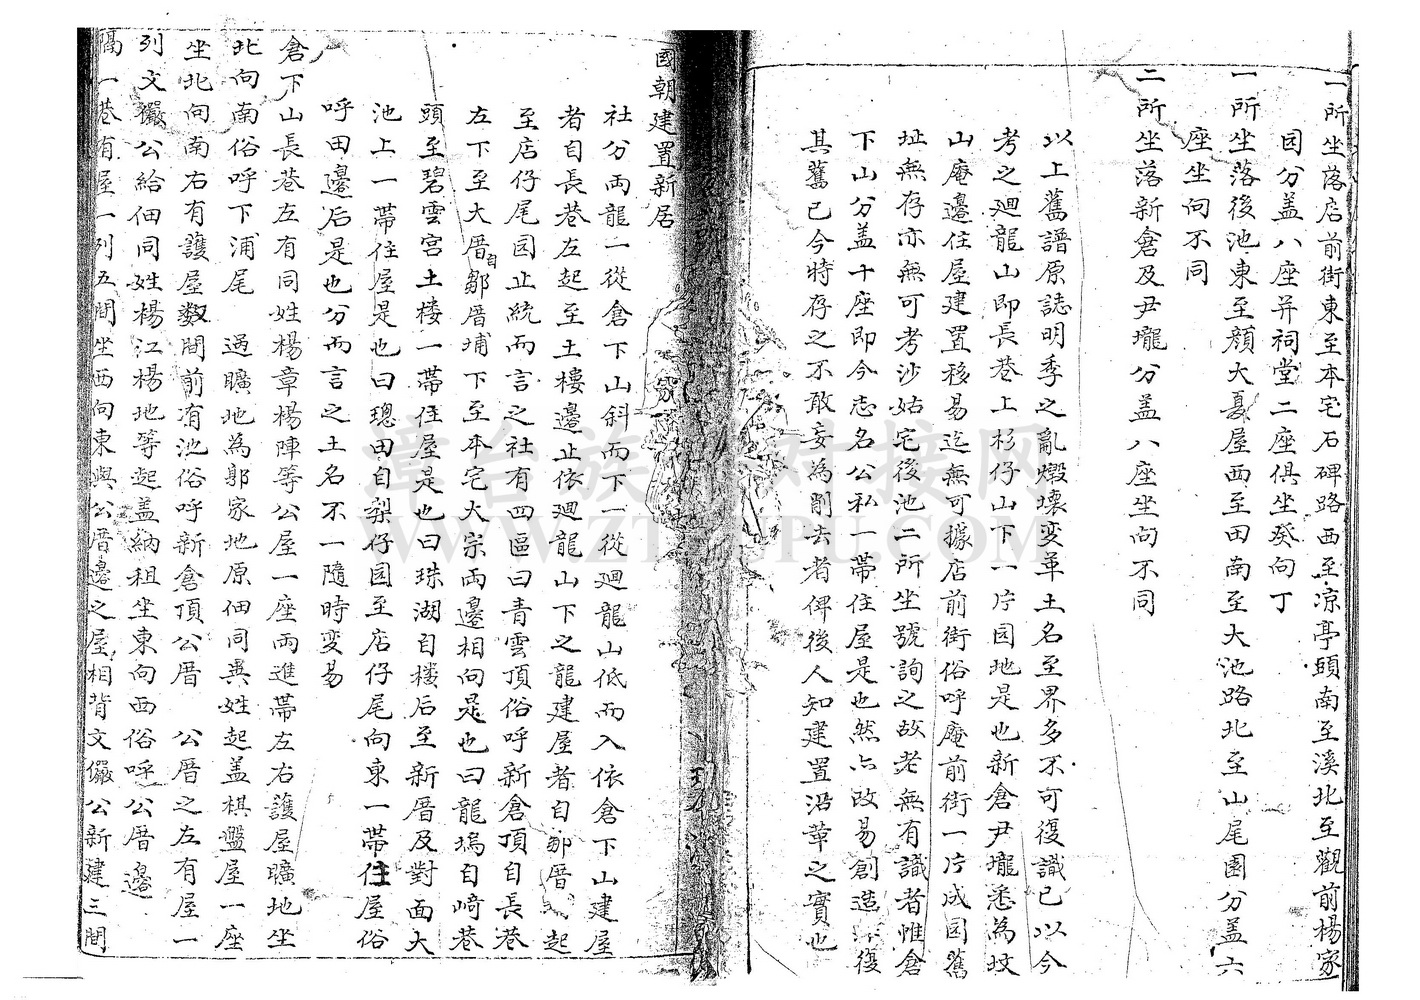 一所坐落店前街東至本宅石碑路西至凉亭頭南至溪北至觀前楊家
园分盖八座并祠堂二座俱坐癸向丁
一所坐落後池東至顏大憂屋西至田南至大池路北至山尾園分盖六
座坐向不同
二所坐落新倉及尹壠分盖八座坐向不同
以上舊譜原誌明季之亂燬壞变革土名至界多不可復識已以今
考之廻龍山即長巷上杉仔山下一片园地是也新倉尹壠悉為坟
山庵邊住屋建置移易迄無可據店前街俗呼庵前街一片成园舊
址無存亦無可考沙姑宅後池二所坐號詢之故老無有識者惟倉
下山分盖十座即今志名公私一帶住屋是也然亦改易創造復
其舊已今特存之不敢妄為削去者俾後人知建置沿革之實也
國朝建置新居
社分両龍一從倉下山斜而下一從廻龍山低而入依倉下山建屋
者自長巷左起至土樓邊止依廻龍山下之龍建屋者自鄒厝起
至店仔尾园止統而言之社有四區曰青雲頂俗呼新倉頂自長巷
左下至大厝自鄒厝埔下至本宅大宗両邊相向是也曰龍塢自崎巷
頭至碧雲宮土楼一帶住屋是也曰珠湖自楼后至新厝及對面大
池上一帶住屋是也曰璁田自梨仔园至店仔尾向東一帶住屋俗
呼田邊后是也分而言之土名不一隨時变易
倉下山長巷左有同姓楊章楊陣等公屋一座両進帶左右護屋曠地坐
北向南俗呼下浦尾 過曠地為郭家地原佃同異姓起盖棋盤屋一座
坐北向南右有護屋数間前有池俗呼新倉頂公厝 公厝之左有屋一
列文儼公給佃同姓楊江楊地等起盖納租坐東向西俗呼公厝邊
隔一巷有屋一列五間坐西向東與公厝邊之屋相背文儼公新建三間
章台族譜对接网
WWW.ZTZUPU.COM